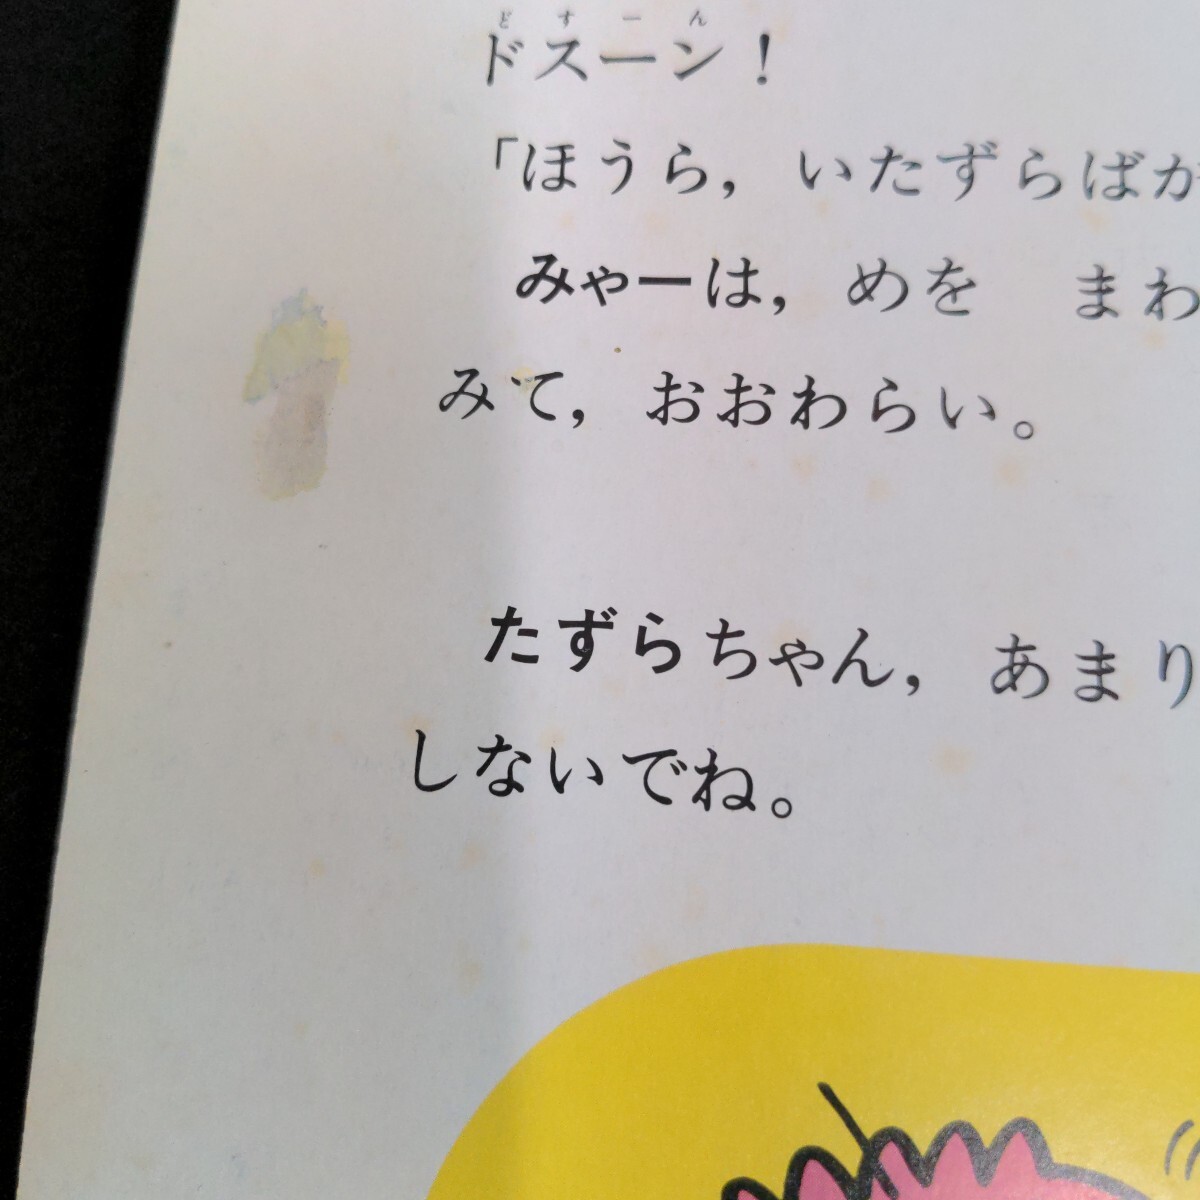 どすーん
ドスーン！
「ほうら，いたずらばか
みゃーは，めを　まわ
みて，おおわらい。
たずらちゃん，あまり
しないでね。